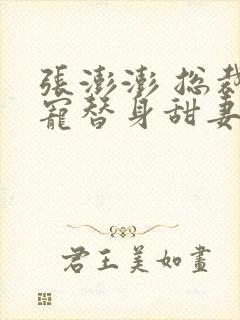 張澎澎 总裁
寵替身甜妻
君王美如畫